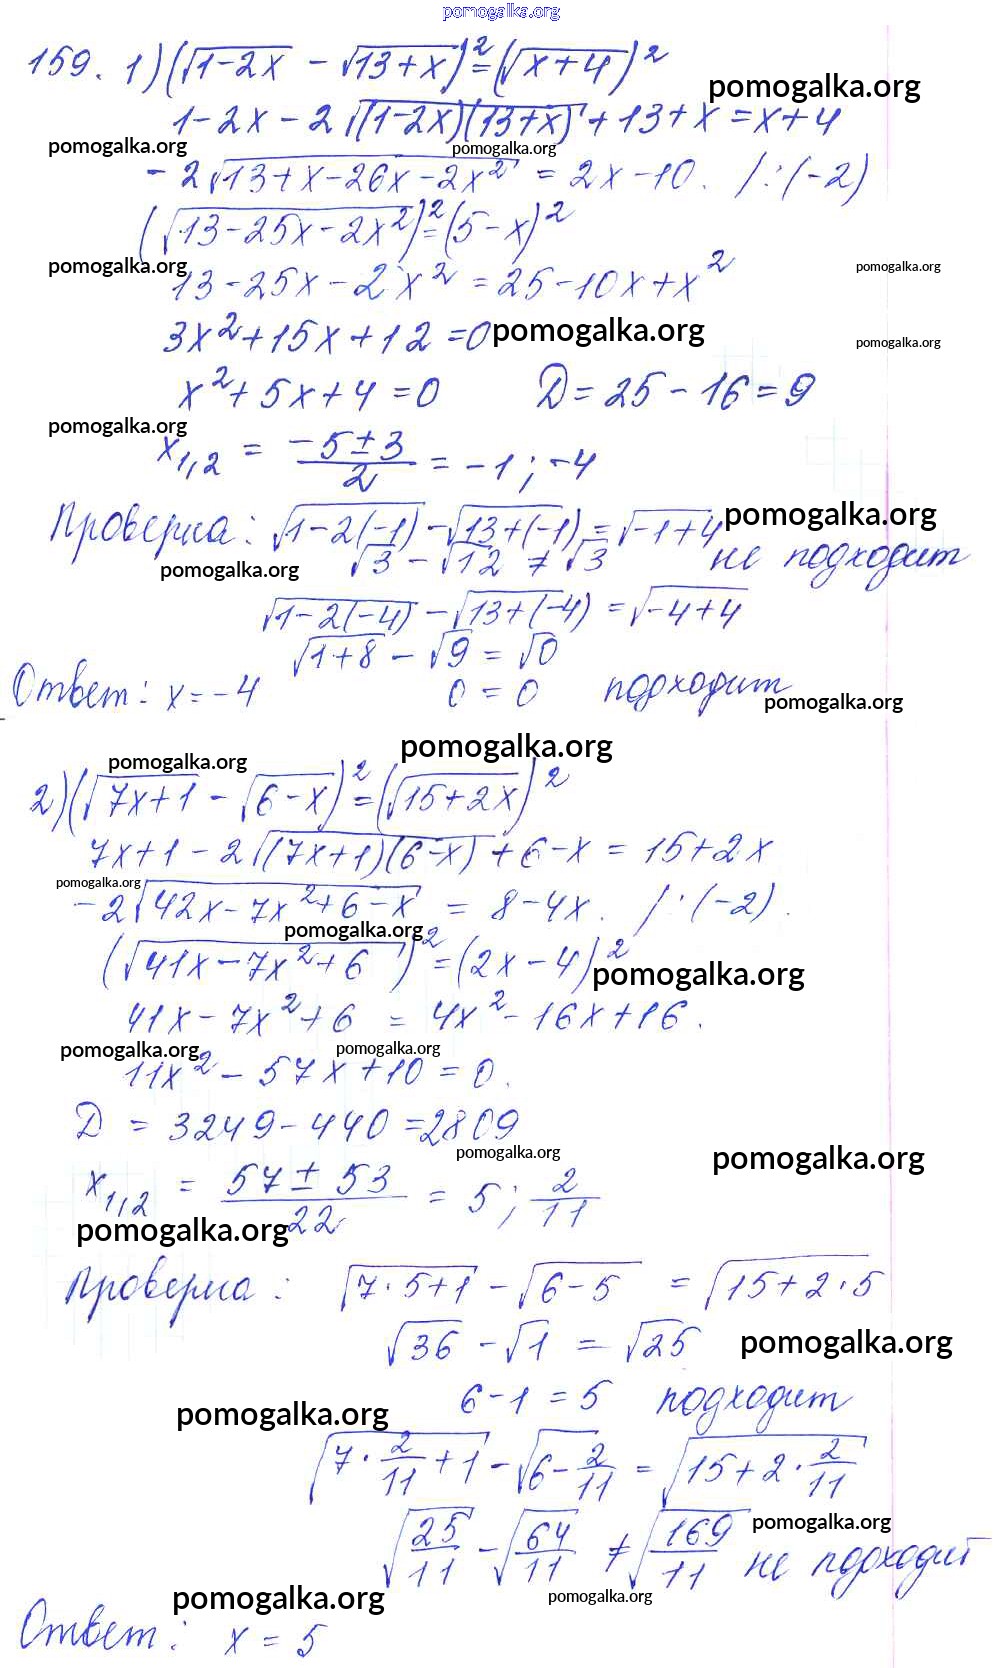 pomogalka.org
159. 1) (√(1-2x) - √(13+x))² = (√(x+4))²
pomogalka.org
1-2x - 2√((1-2x)(13+x)) + 13+x = x+4
pomogalka.org pomogalka.org
-2√(13+x-26x-2x²) = 2x-10. /:(-2)
(√(13-25x-2x²))² = (5-x)²
pomogalka.org pomogalka.org
13-25x-2x² = 25-10x+x²
3x²+15x+12 = 0 pomogalka.org
pomogalka.org
x²+5x+4 = 0 D = 25-16 = 9
pomogalka.org
x₁,₂ = (-5±3)/2 = -1; -4
Проверка: √(1-2(-1)) - √(13+(-1)) = √(-1+4) pomogalka.org
√3 - √12 ≠ √3 не подходит
pomogalka.org
√(1-2(-4)) - √(13+(-4)) = √(-4+4)
√(1+8) - √9 = √0
Ответ: x = -4 0 = 0 подходит
pomogalka.org
pomogalka.org
pomogalka.org
2) (√(7x+1) - √(6-x))² = (√(15+2x))²
7x+1 - 2√((7x+1)(6-x)) + 6-x = 15+2x
pomogalka.org
-2√(42x-7x²+6-x) = 8-4x. /:(-2).
pomogalka.org
(√(41x-7x²+6))² = (2x-4)²
pomogalka.org
41x-7x²+6 = 4x²-16x+16.
pomogalka.org pomogalka.org
11x²-57x+10 = 0.
D = 3249-440 = 2809
pomogalka.org pomogalka.org
x₁,₂ = (57±53)/22 = 5; 2/11
pomogalka.org
Проверка: √(7·5+1) - √(6-5) = √(15+2·5)
√36 - √1 = √25 pomogalka.org
6-1 = 5 подходит
pomogalka.org
√(7·2/11+1) - √(6-2/11) = √(15+2·2/11)
pomogalka.org
√(25/11) - √(64/11) ≠ √(169/11) не подходит
pomogalka.org pomogalka.org
Ответ: x = 5